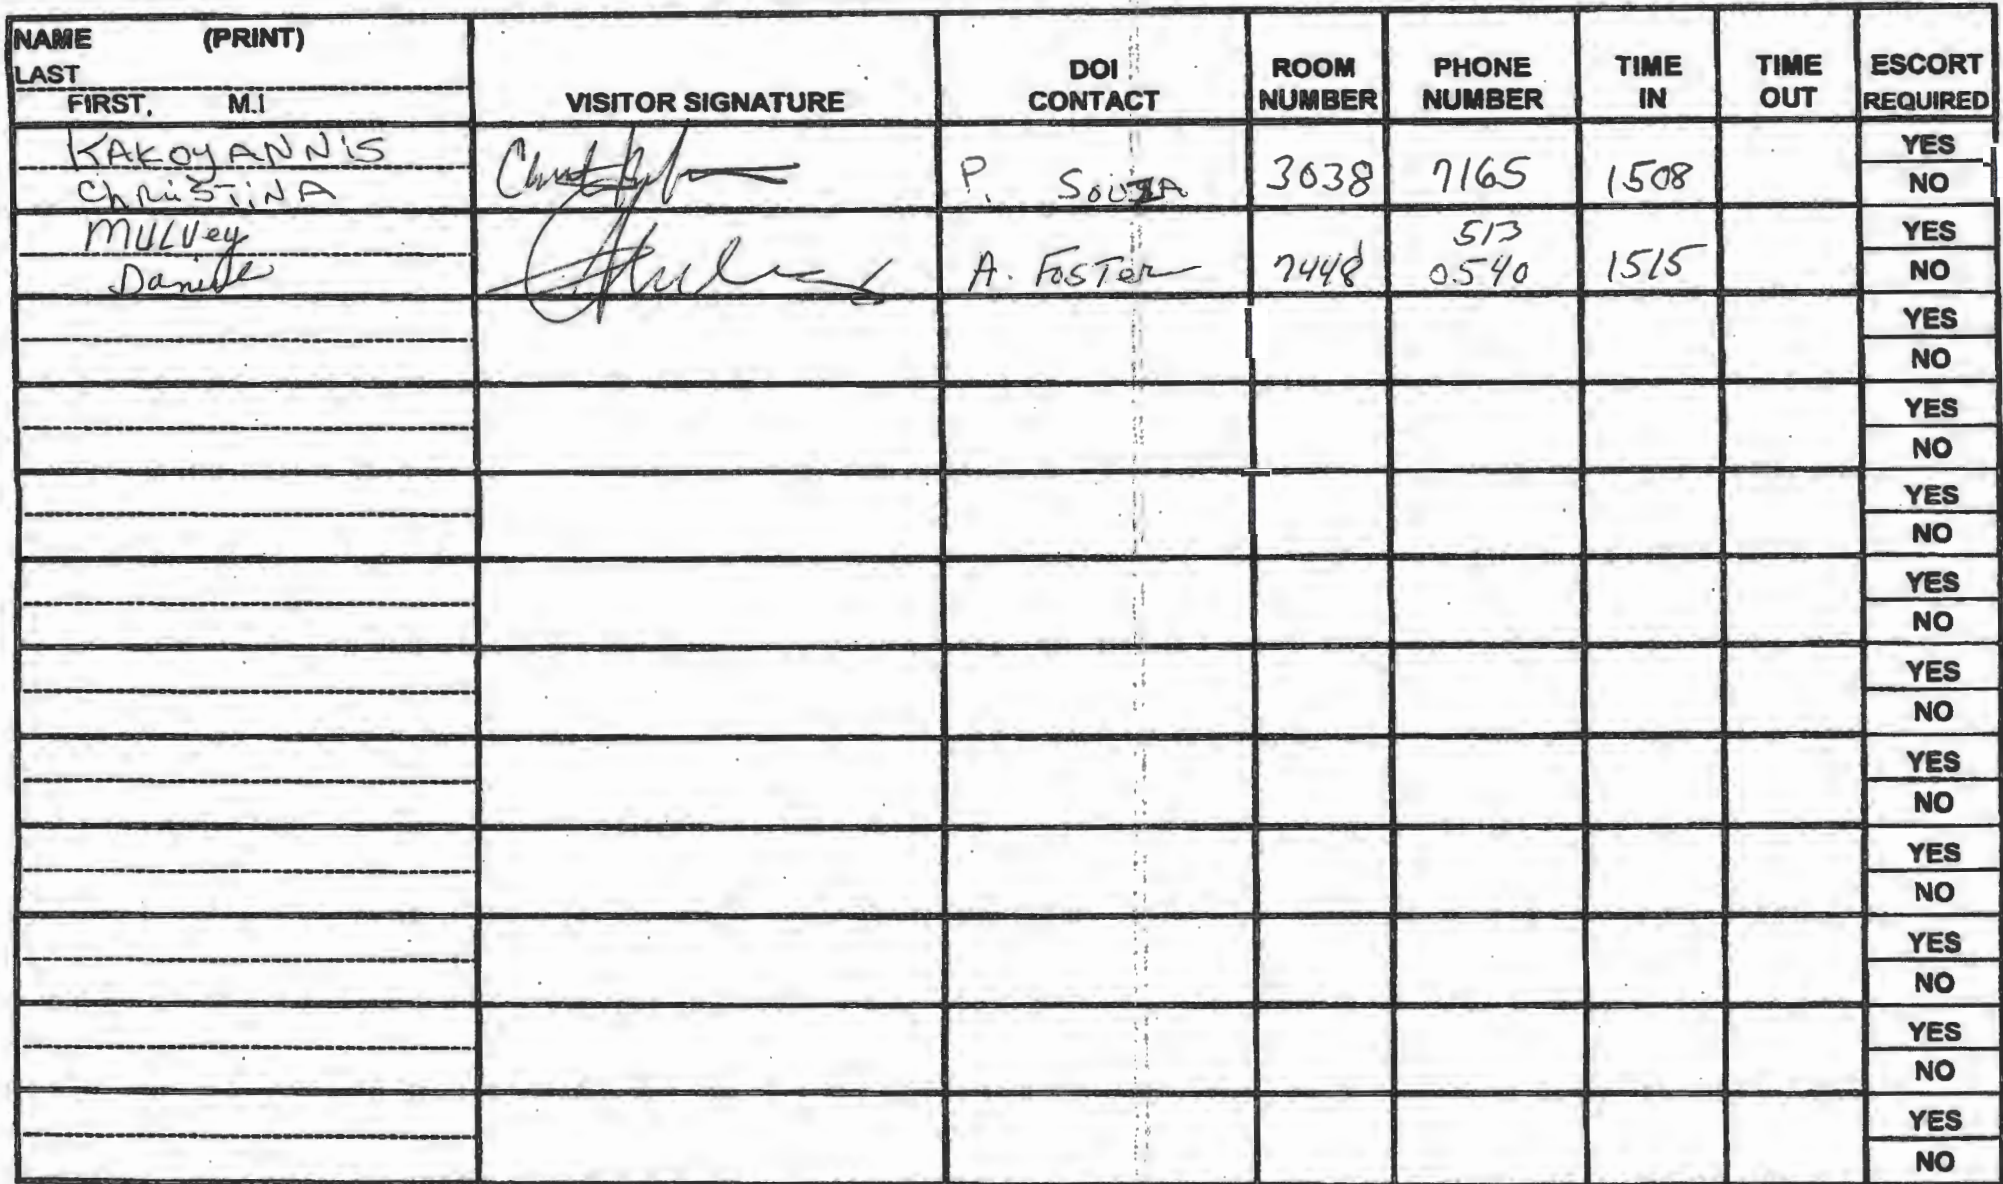 NAME (PRINT)
LAST
FIRST, M.I
VISITOR SIGNATURE
DOI CONTACT
ROOM NUMBER
PHONE NUMBER
TIME IN
TIME OUT
ESCORT REQUIRED
KAKOYANNIS
ChRiSTiNA
P. SOUZA
3038
7165
1508
YES
NO
MULVey
A. FOSTer
7448
513
0540
1515
YES
NO
YES
NO
YES
NO
YES
NO
YES
NO
YES
NO
YES
NO
YES
NO
YES
NO
YES
NO
YES
NO